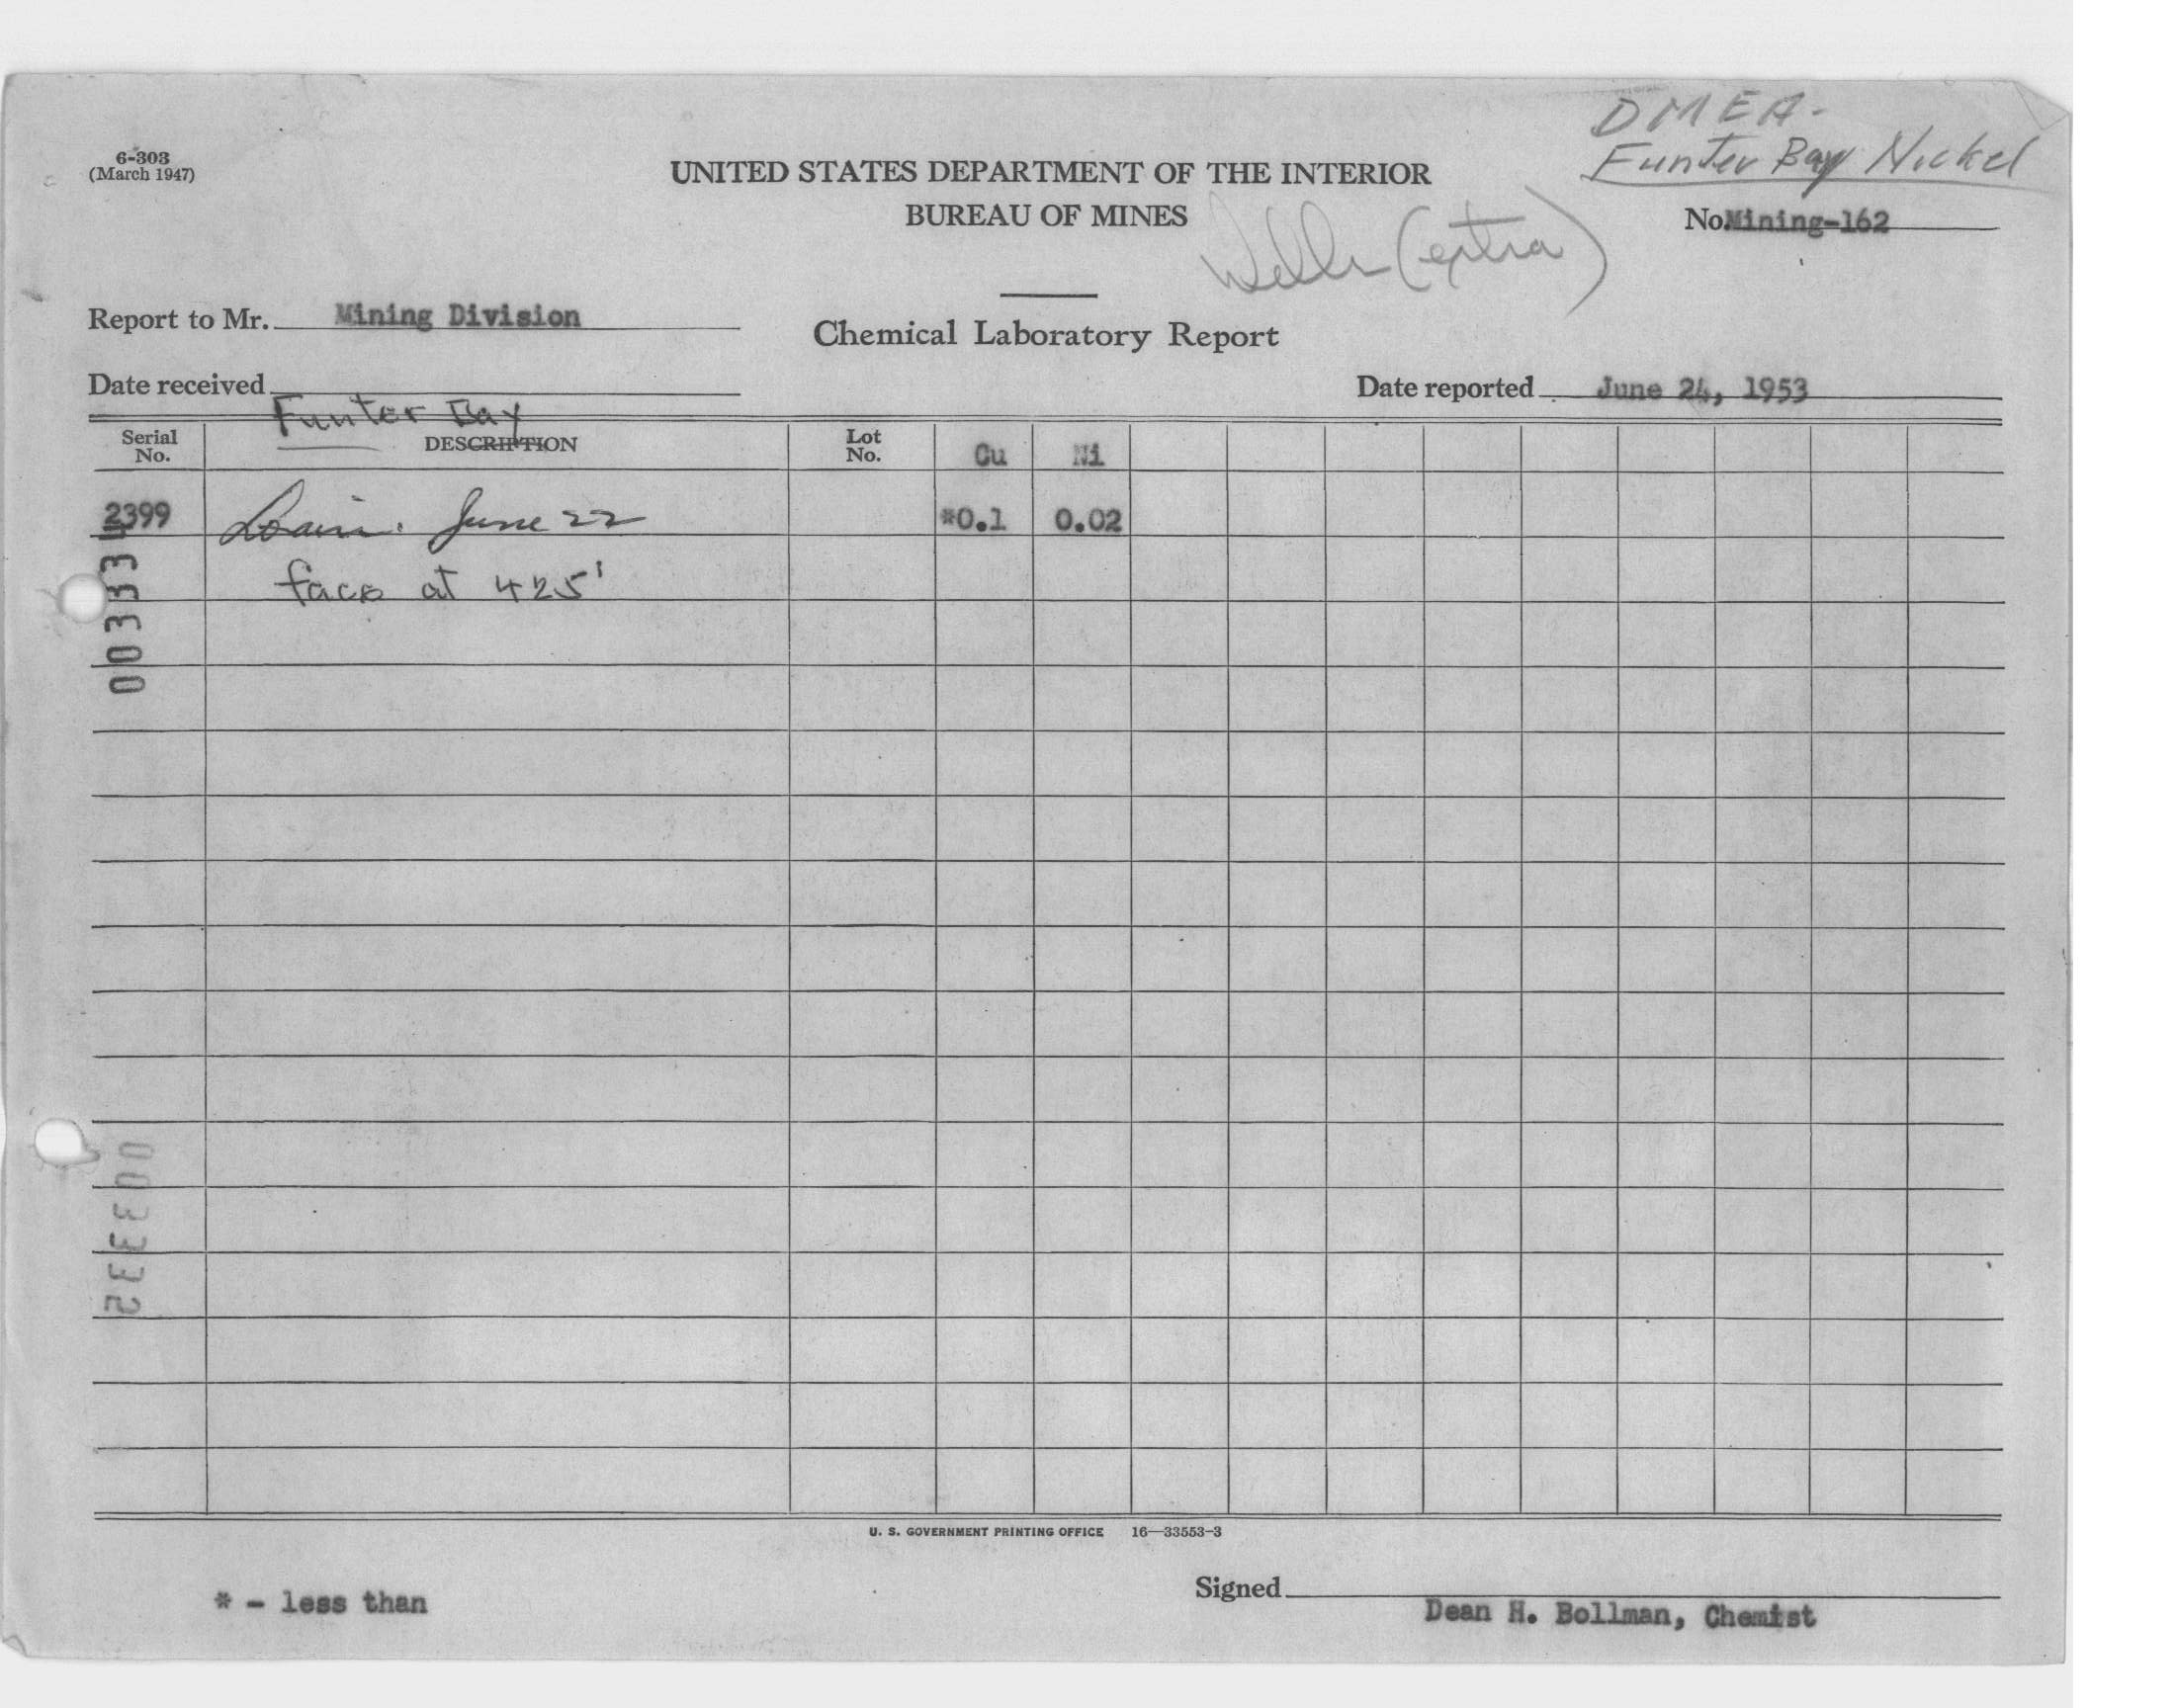 DMEA-
Funter Bay Nickel
6-303
(March 1947)
UNITED STATES DEPARTMENT OF THE INTERIOR
BUREAU OF MINES
No. Mining-162
(extra)
Report to Mr. Mining Division
Chemical Laboratory Report
Date received
Date reported June 24, 1953
Funter Bay
Serial No. DESCRIPTION Lot No. Cu Ni
2399 June 22 *0.1 0.02
face at 425'
003334
00332
U. S. GOVERNMENT PRINTING OFFICE 16—33553-3
* - less than
Signed
Dean H. Bollman, Chemist